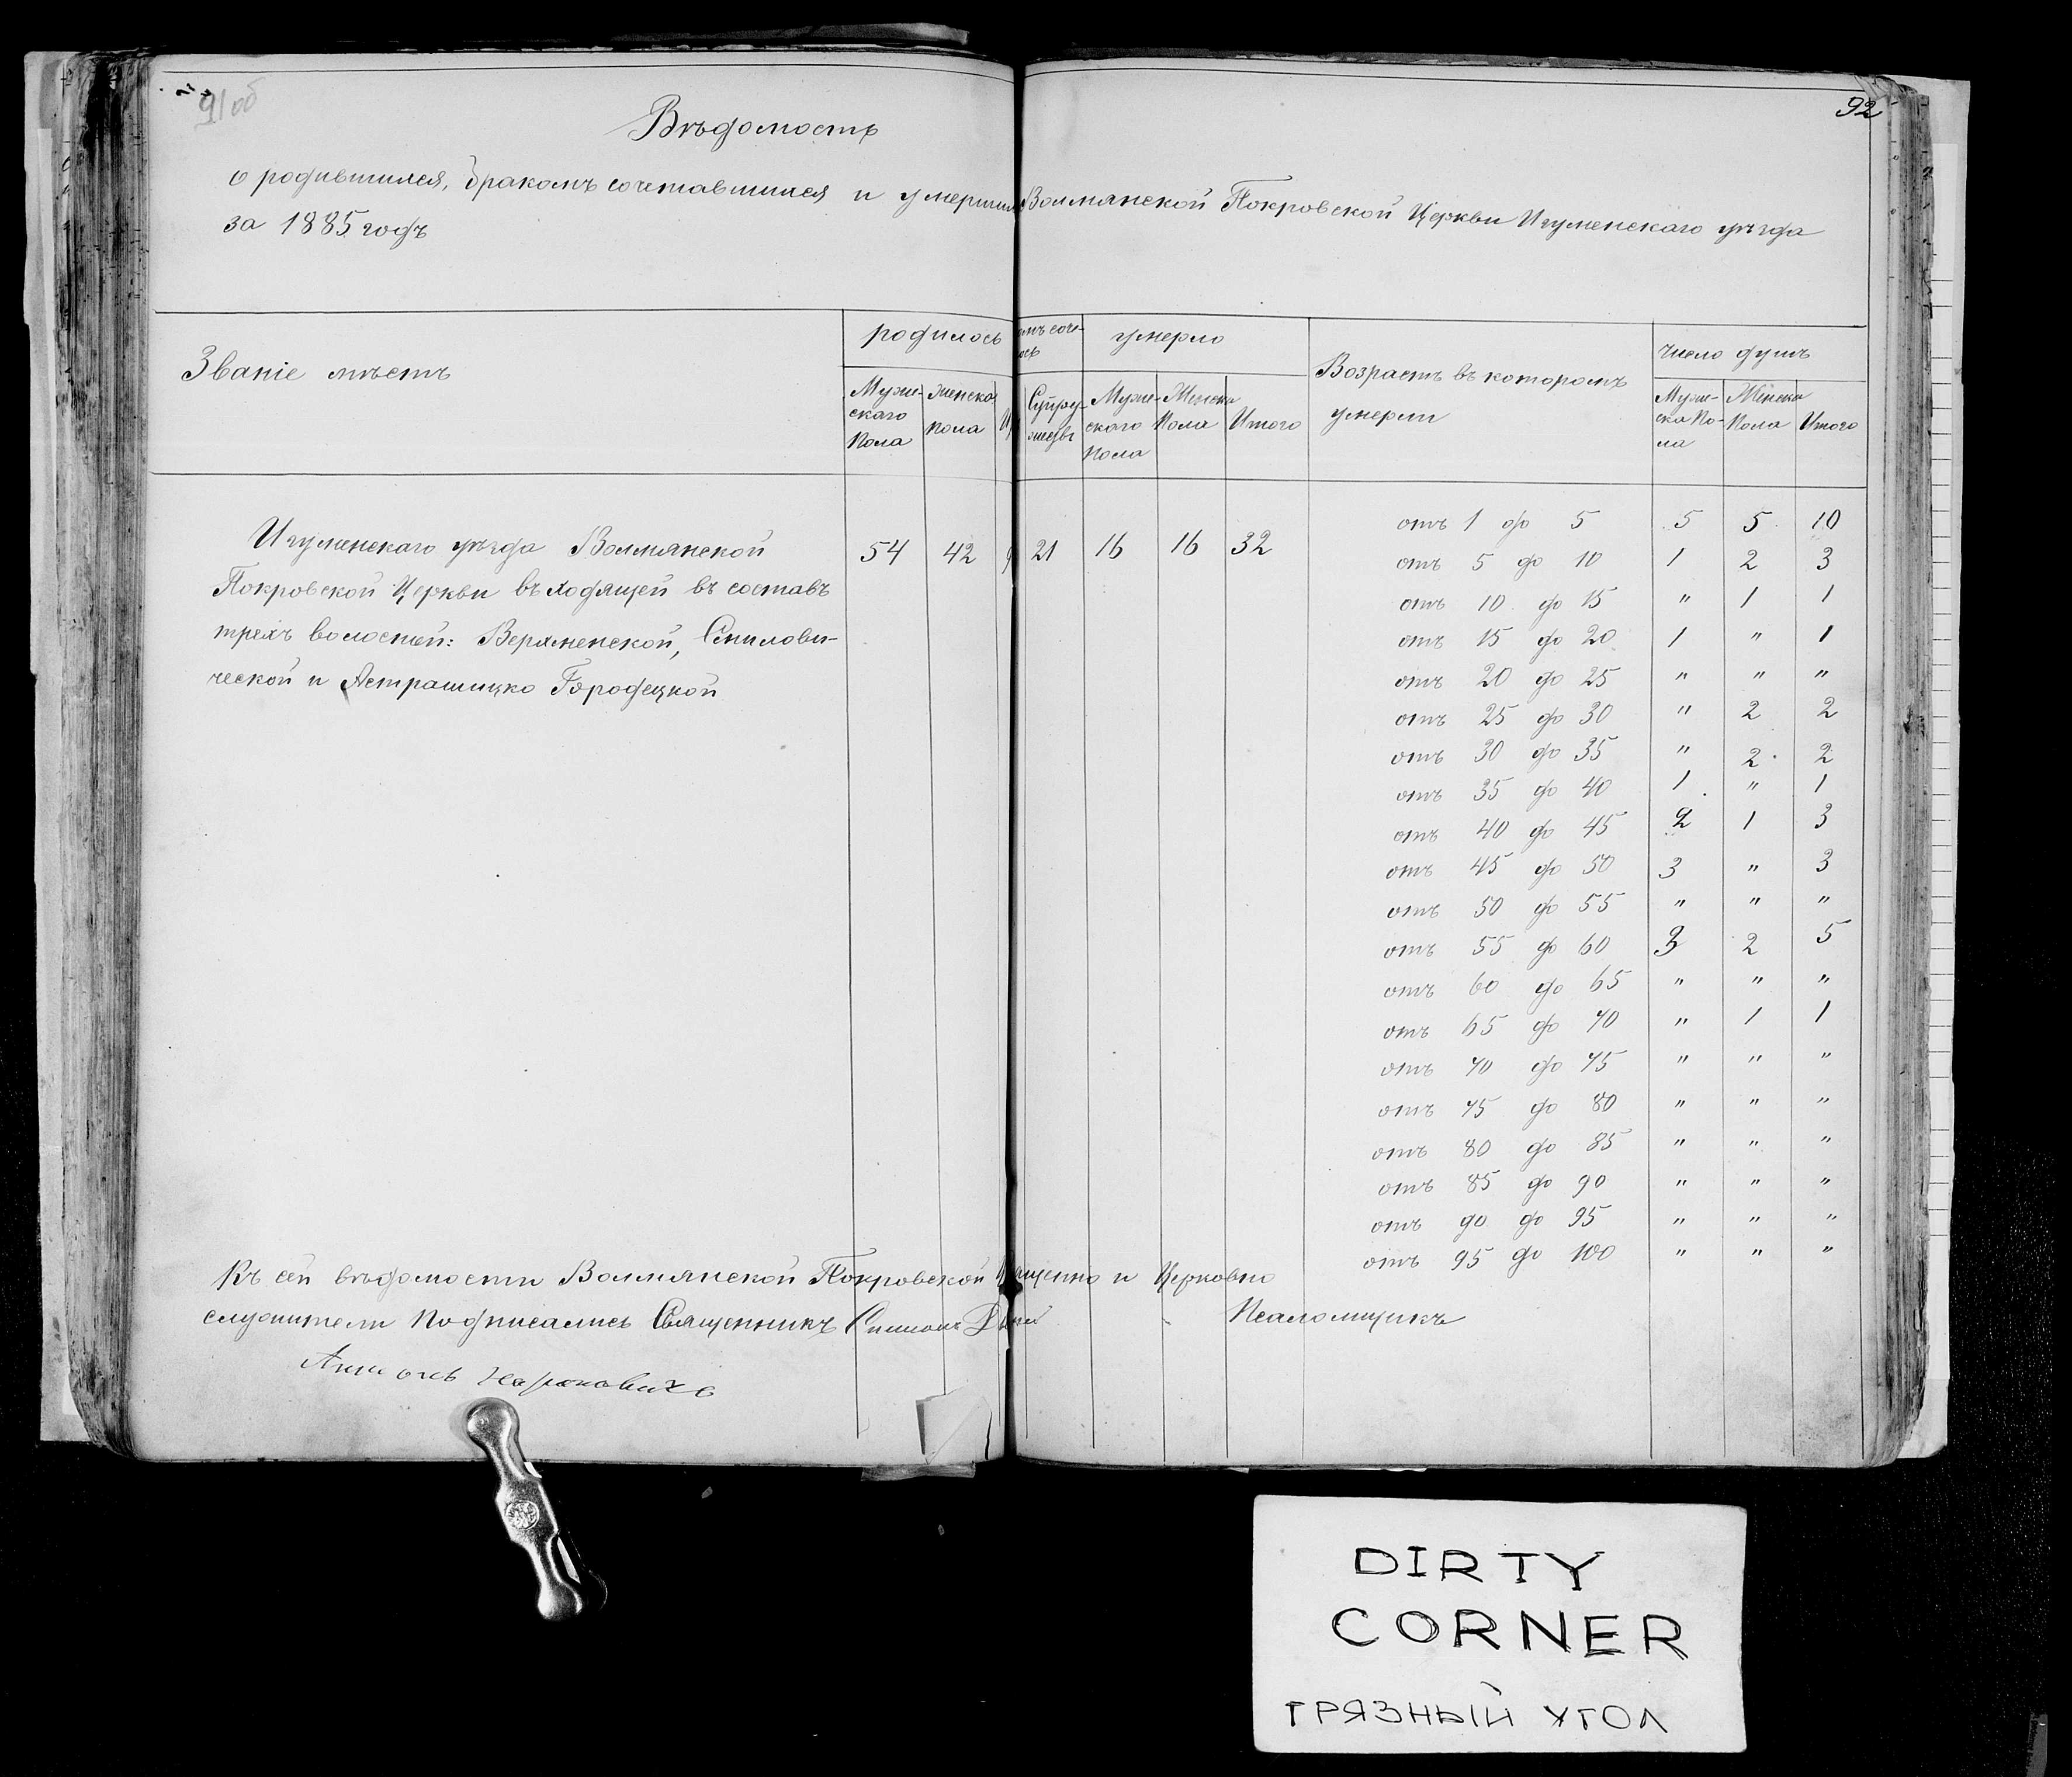 91 об
92
Вѣдомость
о родившихся, бракомъ сочетавшихся и умерших Волмянской Покровской Церкви Игуменскаго уѣзда
за 1885 годъ
Званіе мѣстъ
родилось
Муже-
скаго
пола
женска
пола
мъ соче-
ось
Супру-
жествъ
умерло
Муже-
скаго
пола
Женска
пола
Итого
Возрастъ въ которомъ
умерли
число душъ
Муже-
ска по-
ла
Женска
пола
Итого
Игуменскаго уѣзда Волмянской
Покровской Церкви въ ходящей въ составъ
трехъ волостей: Верхменской, Смилови-
ческой и Астрашицко Городецкой
54 42 21 16 16 32
отъ 1 до 5 5 5 10
отъ 5 до 10 1 2 3
отъ 10 до 15 " 1 1
отъ 15 до 20 1 " 1
отъ 20 до 25 " " "
отъ 25 до 30 " 2 2
отъ 30 до 35 " 2 2
отъ 35 до 40 1 " 1
отъ 40 до 45 2 1 3
отъ 45 до 50 3 " 3
отъ 50 до 55 " " "
отъ 55 до 60 3 2 5
отъ 60 до 65 " " "
отъ 65 до 70 " 1 1
отъ 70 до 75 " " "
отъ 75 до 80 " " "
отъ 80 до 85 " " "
отъ 85 до 90 " " "
отъ 90 до 95 " " "
отъ 95 до 100 " " "
Къ сей вѣдомости Волмянской Покровской щенно и Церковно
служители подписались Священникъ Симеонъ Псаломщикъ
Антонъ
DIRTY
CORNER
ГРЯЗНЫЙ УГОЛ